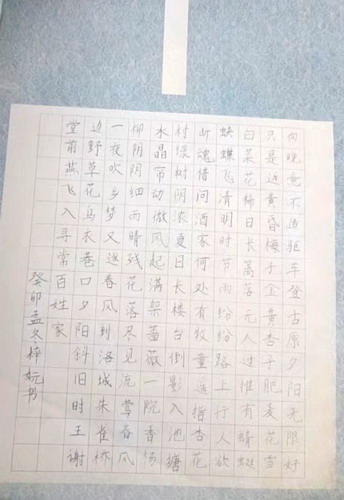 向晚意不适驱车登古原夕阳无限好
只是近黄昏梅子金黄杏子肥麦花雪
白菜花稀日长篱落无人过惟有蜻蜓
蛱蝶飞清明时节雨纷纷路上行人欲
断魂借问酒家何处有牧童遥指杏花
村绿树阴浓夏日长楼台倒影入池塘
水晶帘动微风起满架蔷薇一院香杨
柳阴阴细雨晴残花落尽见流莺春风
一夜吹乡梦又逐春风到洛城朱雀桥
边野草花乌衣巷口夕阳斜旧时王谢
堂前燕飞入寻常百姓家
癸卯孟冬梓妧书